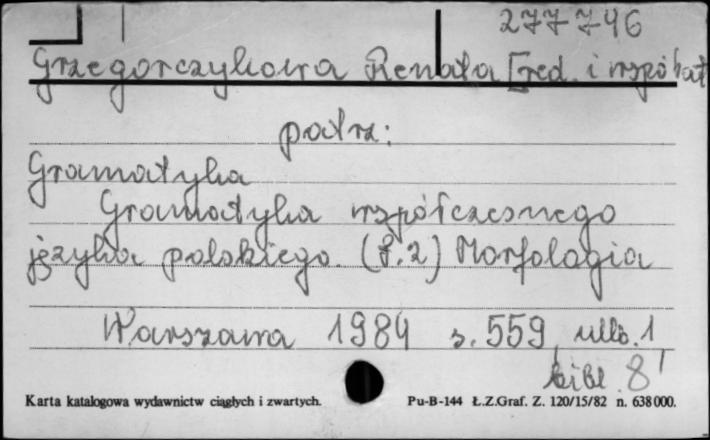 277746
Grzegorczykowa Renata [red. i współaut
patrz:
Gramatyka
Gramatyka współczesnego
języka polskiego. (T.2) Morfologia
Warszawa 1984 s. 559, nlb. 1
bibl. 8'
Karta katalogowa wydawnictw ciągłych i zwartych. Pu-B-144 Ł.Z.Graf. Z. 120/15/82 n. 638000.